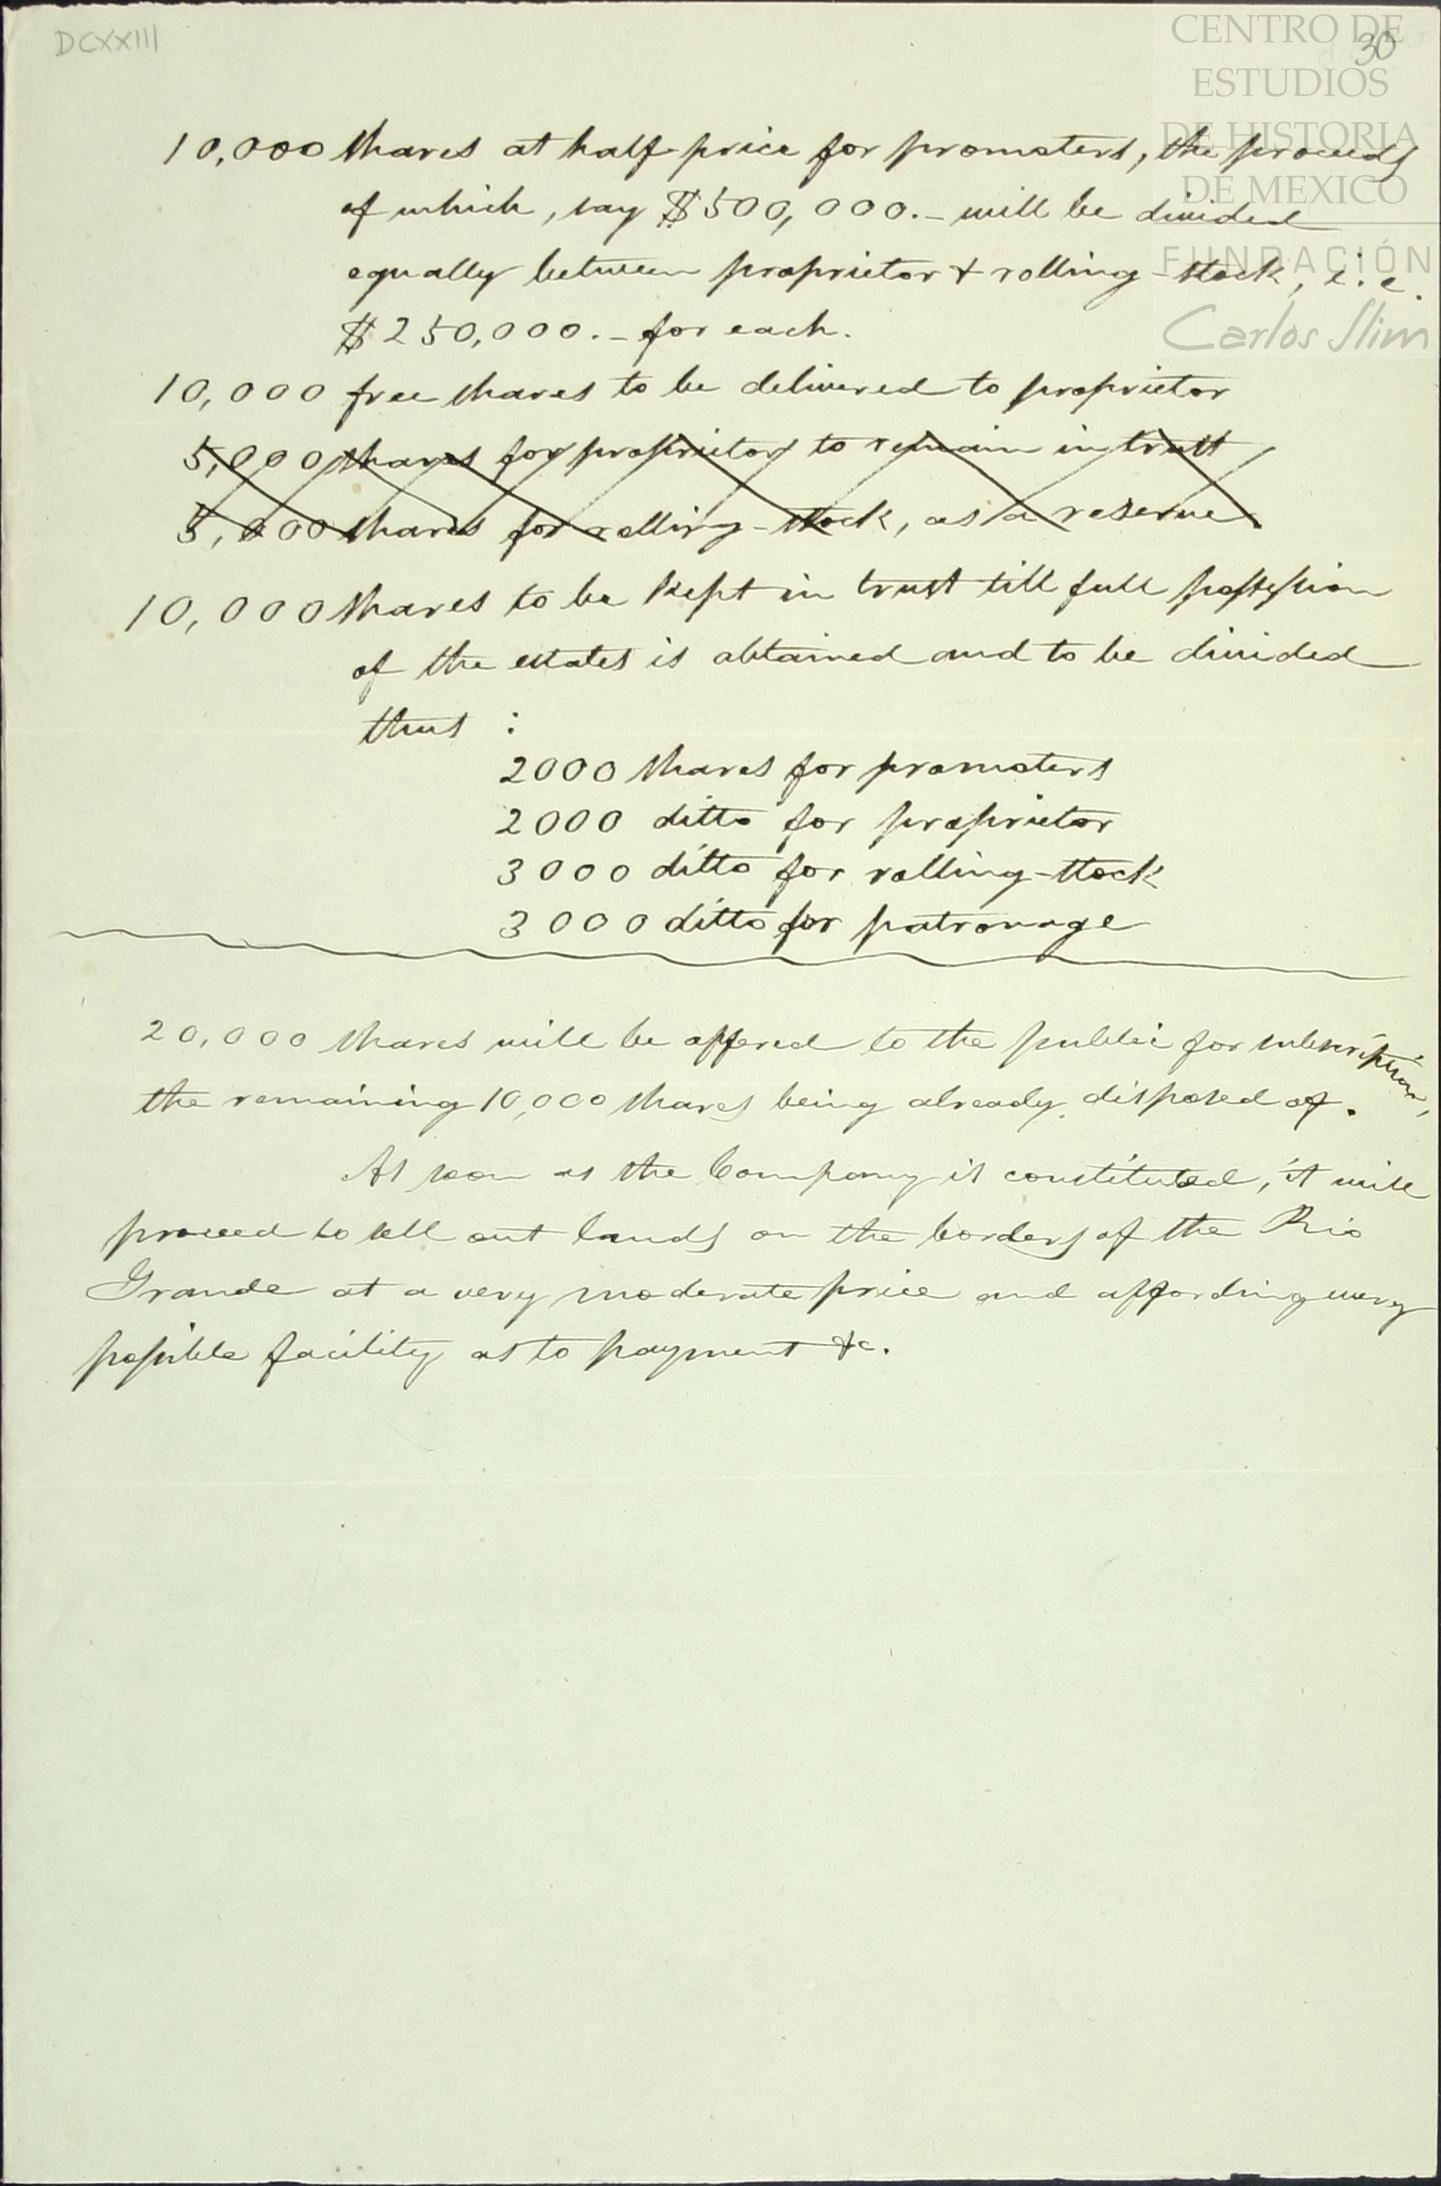 DCXXIII
30
CENTRO DE
ESTUDIOS
DE HISTORIA
DE MEXICO
FUNDACIÓN
Carlos Slim
10,000 shares at half-price for promoters, the proceeds
of which, say $500,000.- will be divided
equally between proprietor & rolling-stock, i.e.
$250,000.- for each.
10,000 free shares to be delivered to proprietor
5,000 shares for proprietor to remain in trust
5,000 shares for rolling-stock, as a reserve
10,000 shares to be kept in trust till full possession
of the estates is obtained and to be divided
thus :
2000 shares for promoters
2000 ditto for proprietor
3000 ditto for rolling-stock
3000 ditto for patronage
20,000 shares will be offered to the public for subscription,
the remaining 10,000 shares being already disposed of.
As soon as the Company is constituted, it will
proceed to sell out lands on the borders of the Rio
Grande at a very moderate price and affording every
possible facility as to payment &c.